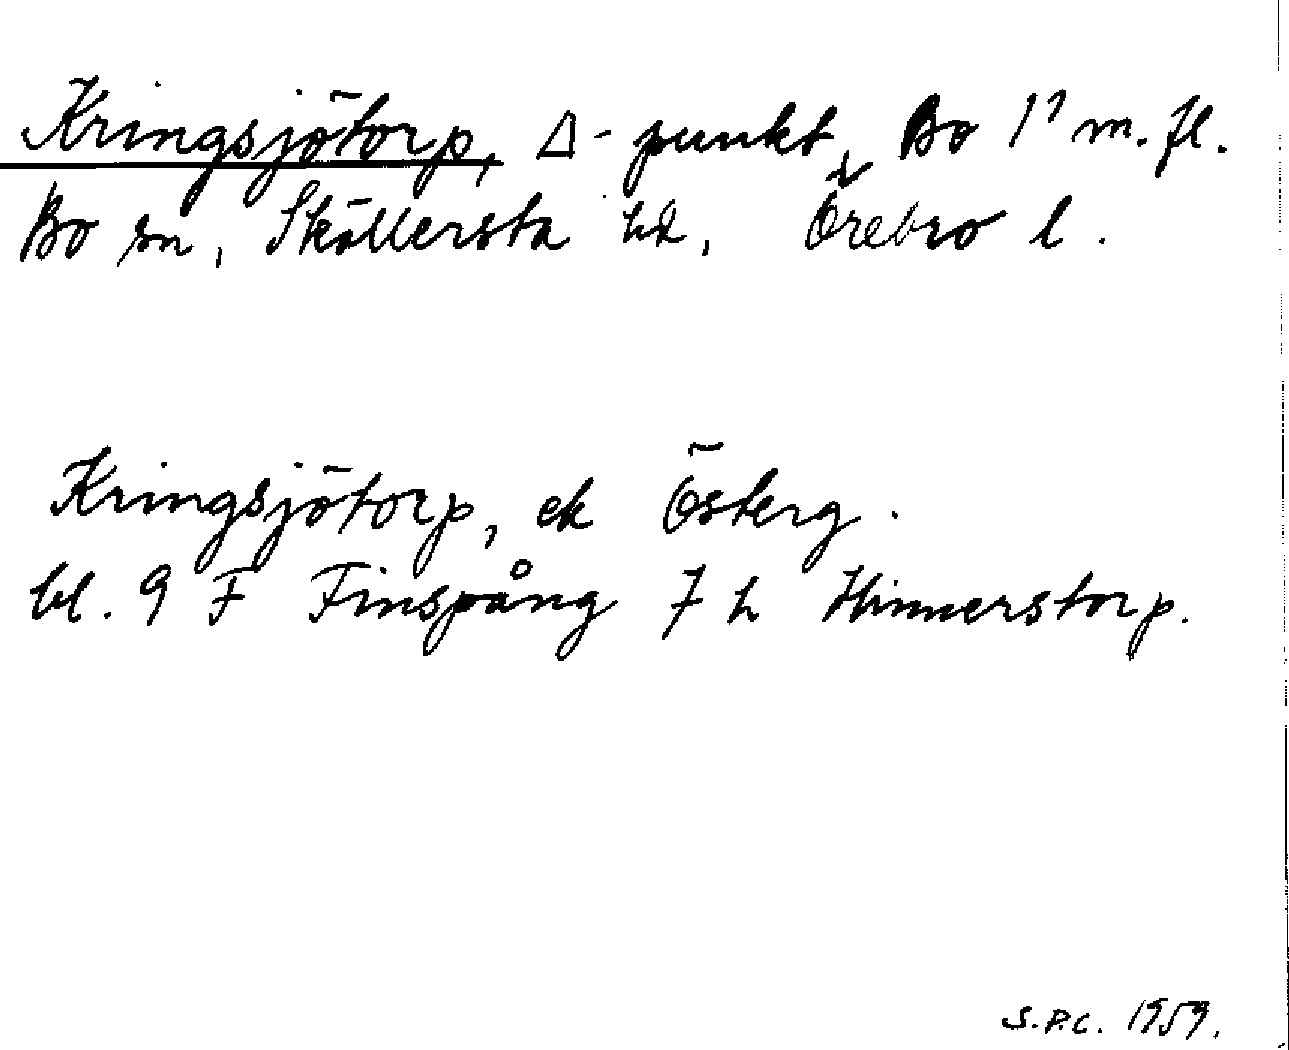 Kringsjötorp, Δ-punkt, Bo 1¹ m.fl.
Bo sn, Sköllersta hd, Örebro l.
Kringsjötorp, ek Österg.
bl. 9 F Finspång 7 h Hinnerstorp.
S.P.C. 1959.